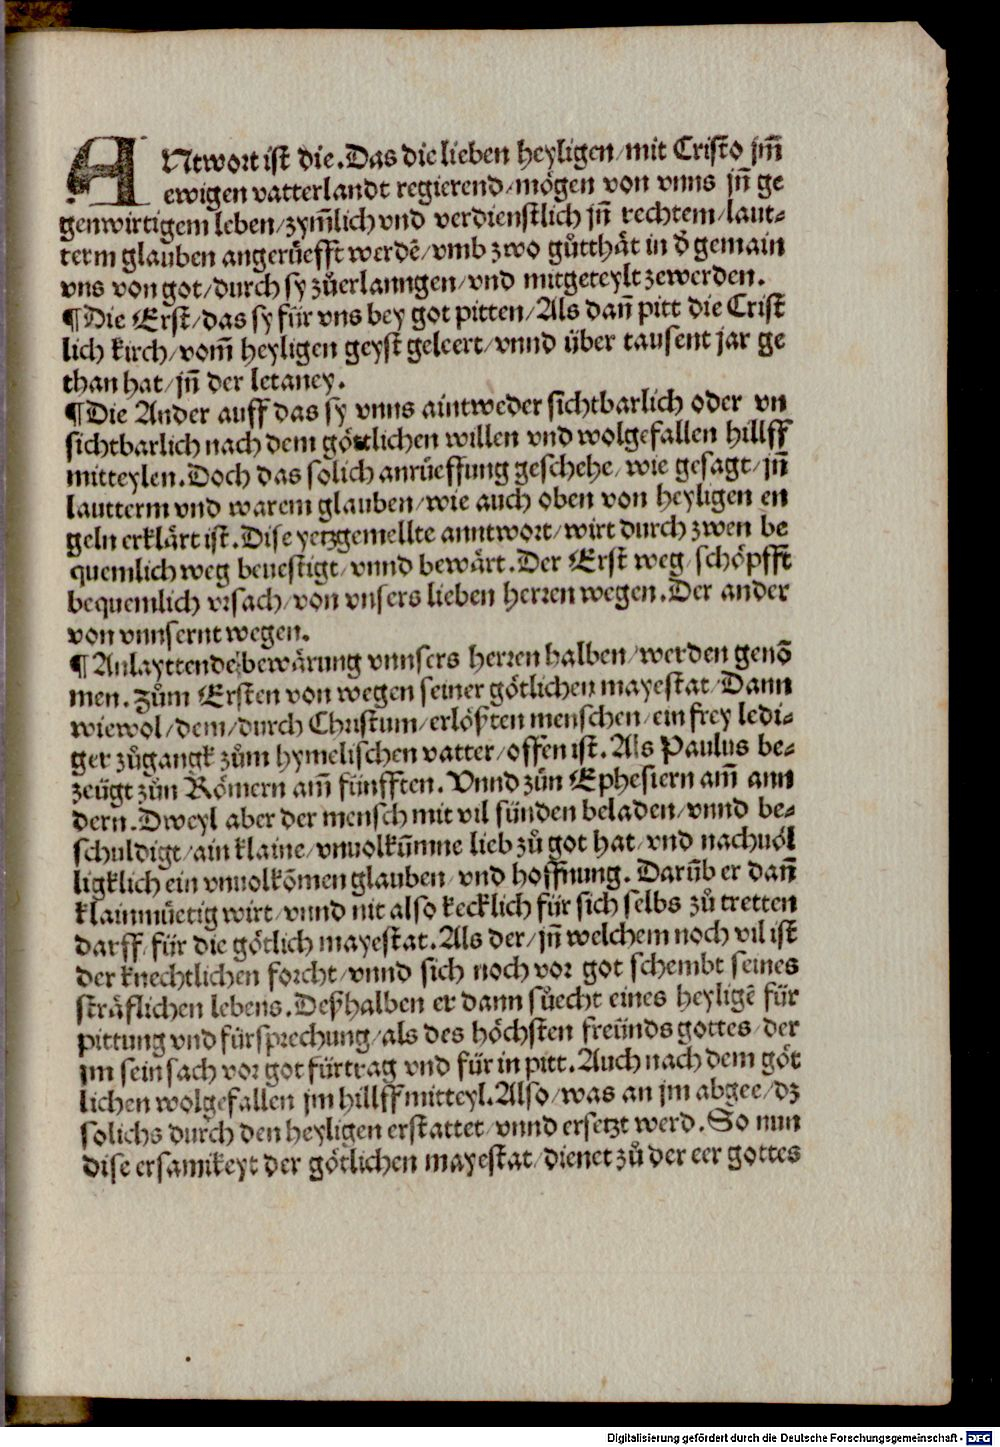 ANtwort ist die. Das die lieben heyligen/mit Cristo jm̃
ewigen vatterlandt regierend/mögen von vnns jñ ge
genwirtigem leben/zym̃lich vnd verdienstlich jñ rechtem/laut⸗
term glauben angerüefft werdē/vmb zwo gůtthät in d̕ gemain
vns von got/durch sy zůerlanngen/vnd mitgeteylt zewerden.
¶Die Erst/das sy für vns bey got pitten/Als dañ pitt die Crist
lich kirch/vom̃ heyligen geyst geleert/vnnd über tausent jar ge
than hat/jñ der letaney.
¶Die Ander auff das sy vnns aintweder sichtbarlich oder vn
sichtbarlich nach dem götlichen willen vnd wolgefallen hillff
mitteylen. Doch das solich anrüeffung geschehe/wie gesagt/jñ
lautterm vnd warem glauben/wie auch oben von heyligen en
geln erklärt ist. Dise yetzgemellte anntwort/wirt durch zwen be
quemlich weg beuestigt/vnnd bewärt. Der Erst weg/schöpfft
bequemlich vrsach/von vnsers lieben herren wegen. Der ander
von vnnsernt wegen.
¶Anlayttende bewärung vnnsers herren halben/werden genō
men. Zům Ersten von wegen seiner götlichen mayestat/Dann
wiewol/dem/durch Christum/erlößten menschen/ein frey ledi⸗
ger zůgangk zům hymelischen vatter/offen ist. Als Paulus be⸗
zeügt zůn Römern am̃ fünfften. Vnnd zůn Ephesiern am̃ ann
dern. Dweyl aber der mensch mit vil sünden beladen/vnnd be⸗
schuldigt/ain klaine/vnuolkum̃ne lieb zů got hat/vnd nachuöl
ligklich ein vnuolkōmen glauben/vnd hoffnung. Darum̃b er dañ
klainmüetig wirt/vnnd nit also kecklich für sich selbs zů tretten
darff/für die götlich mayestat. Als der/jñ welchem noch vil ist
der knechtlichen forcht/vnnd sich noch vor got schembt seines
sträflichen lebens. Deßhalben er dann sůecht eines heyligē für
pittung vnd fürsprechung/als des höchsten freünds gottes/der
jm sein sach vor got fürtrag vnd für in pitt. Auch nach dem göt
lichen wolgefallen jm hillff mitteyl. Also/was an jm abgee/dz
solichs durch den heyligen erstattet/vnnd ersetzt werd. So nun
dise ersamikeyt der götlichen mayestat/dienet zů der eer gottes
Digitalisierung gefördert durch die Deutsche Forschungsgemeinschaft - DFG